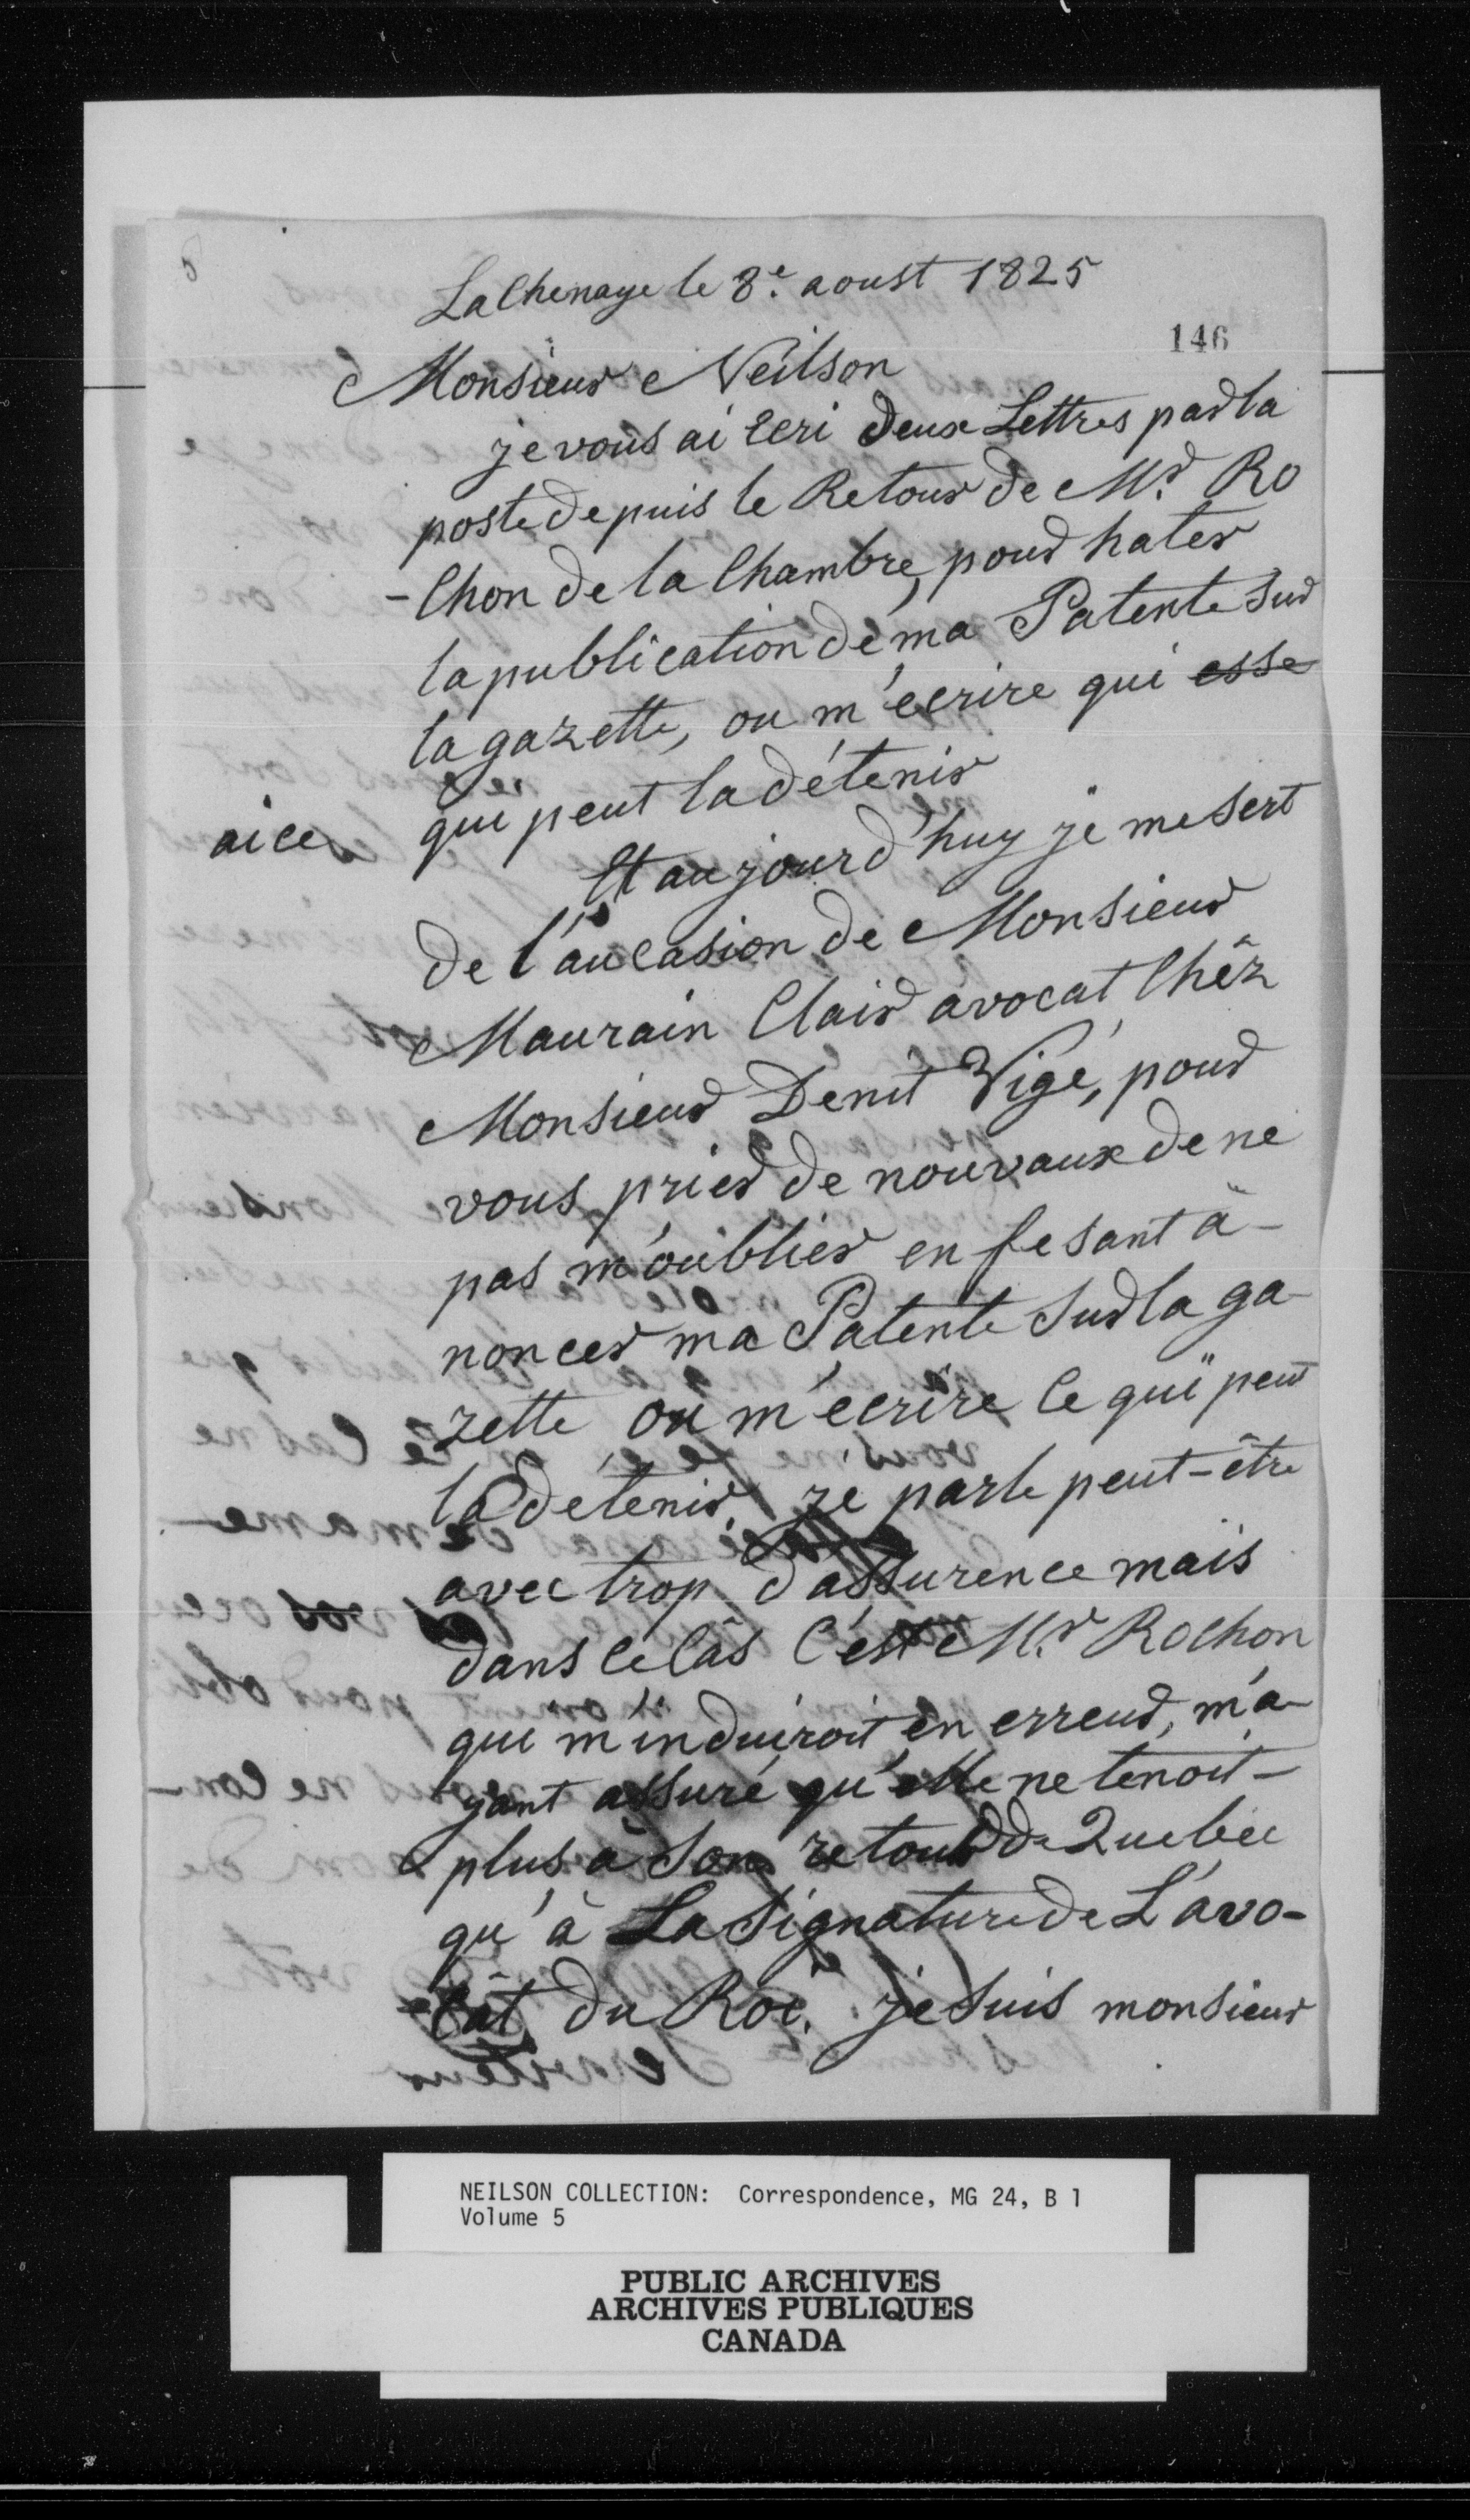 LaChenaye le 8e. aoust 1825
146
Monsieur Neilson
je vous ai ecri deux Lettres par la
poste depuis le Retour de Mr. Ro
-chon de la Chambre, pour hater
la publication de ma Patente sur
la gazette, ou m'ecrire qui esse
aice qui peut la détenir
Et aujourd'huy je me sert
de l'aucasion de Monsieur
Maurain Clair avocat Chêz
Monsieur Denit Vigé, pour
vous prier de nouvaux de ne
pas m'oublier en fesant a-
noncer ma Patente sur la ga-
zette ou m'ecrire ce qui peut
la détenir. je parle peut-être
avec trop d'assurence mais
dans ce Câs C'est Mr. Rochon
qui m'induiroit en erreur, m'a-
yant assuré qu'elle ne tenoit-
plus à son retour de Quebec
qu'à La Signature de L'avo-
-cât du Roi. je suis monsieur
NEILSON COLLECTION: Correspondence, MG 24, B 1
Volume 5
PUBLIC ARCHIVES
ARCHIVES PUBLIQUES
CANADA